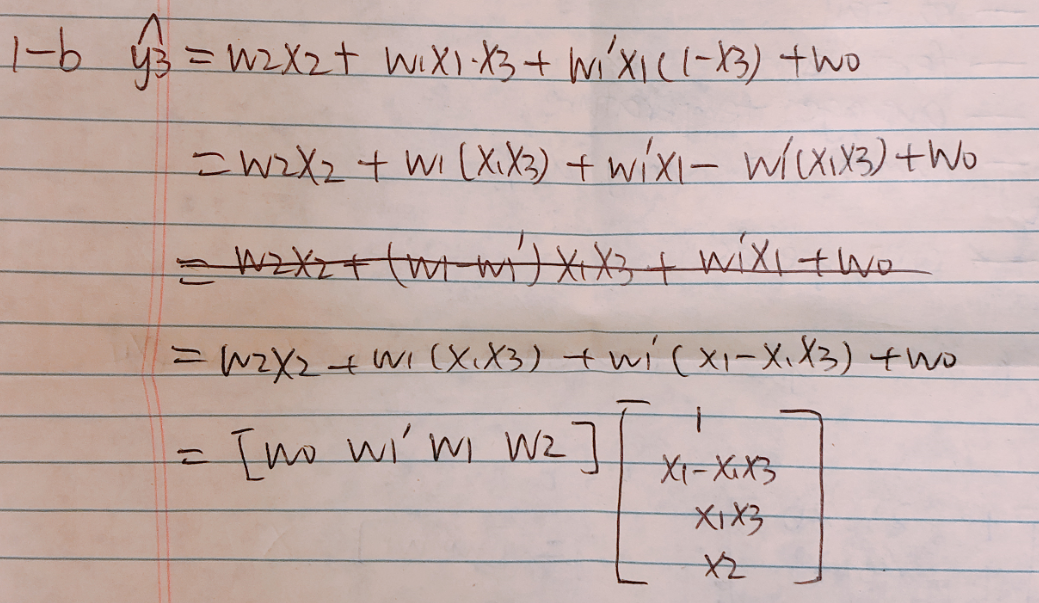 1-b ŷ3 = w2x2 + w1x1·x3 + w1'x1(1-x3) + w0
= w2x2 + w1(x1x3) + w1'x1 - w1'(x1x3) + w0
= w2x2 + (w1-w1')x1x3 + w1'x1 + w0
= w2x2 + w1(x1x3) + w1'(x1-x1x3) + w0
= [w0 w1' w1 w2] [1
x1-x1x3
x1x3
x2]